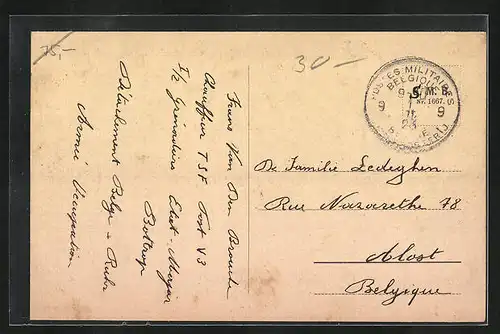 75,-
30-
POSTES MILITAIRES
BELGIQUE
S. M. B.
Nr. 1667.
9 9
23
De Familie Ledeghen
Rue Nazarethe 78
Alost
Belgique
Frans Van Den
Chauffeur T S F Post V3
I/2 Grenadiers Etat-Major
Bottrop
Détachement Belge - Ruhr
Armée Occupation